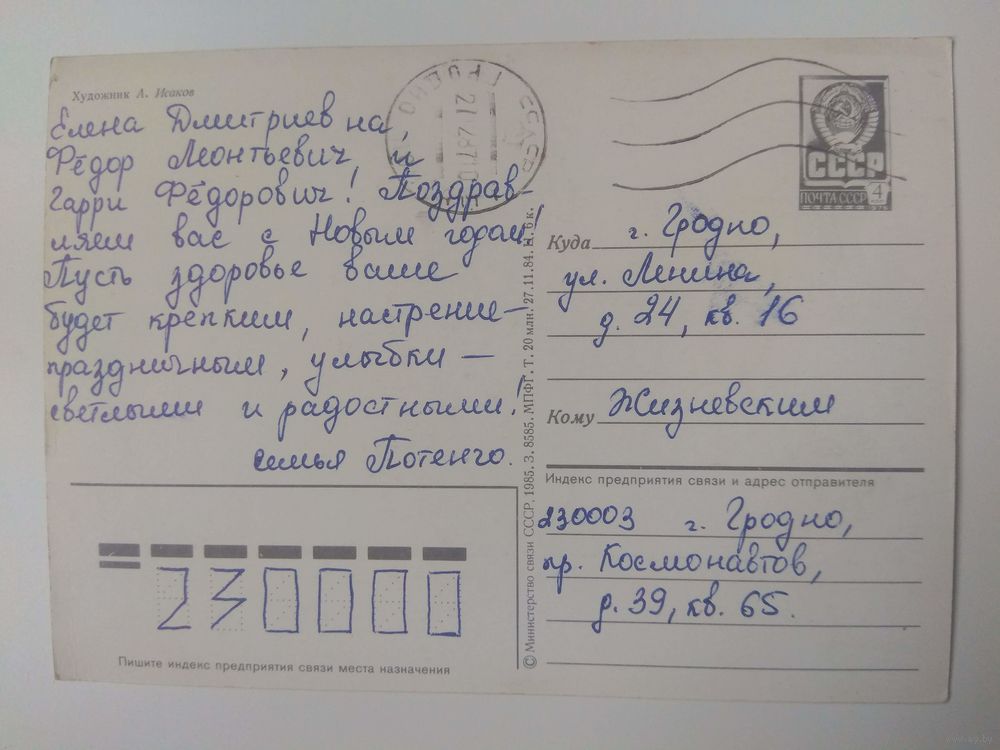 Художник А. Исаков
Елена Дмитриевна,
Фёдор Леонтьевич, и
Гарри Фёдорович! Поздрав-
ляем вас с Новым годом!
Пусть здоровье ваше
будет крепким, настрение-
праздничным, улыбки —
светлыми и радостными!
семья Потенго.
ГРОДНО
СССР
ПОЧТА СССР
4
Куда г. Гродно,
ул. Ленина,
д. 24, кв. 16
Кому Жизневским
Индекс предприятия связи и адрес отправителя
230003 г. Гродно,
пр. Космонавтов,
д. 39, кв. 65.
230000
Пишите индекс предприятия связи места назначения
© Министерство связи СССР. 1985. З. 8585. МПФГ. Т. 20 млн. 27.11.84. Н. 6 к.